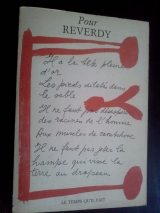 Pour
REVERDY
Il a la tête pleine
d'or
Les pieds dorés dans
le sable
Il ne faut pas
des racines de l'homme
Aux muscles de
Il ne faut pas que la
hampe qui visse la
terre au drapeau
LE TEMPS QU'IL FAIT